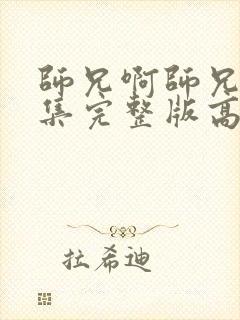 師兄啊師兄
集完整版高
拉希迪